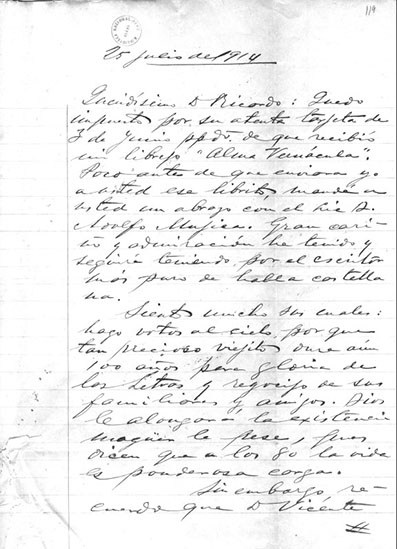 119
25 julio de 1914
Queridísimo D Ricardo: Quedo
impuesto por su atenta tarjeta de
3 de junio ppdo, de que recibió
mi librejo "Alma Vernácula".
Poco antes de que enviara yo
a usted ese librito, mandé a
usted un abrazo con el Lic D.
Adolfo Mujica. Gran cari-
ño y admiración he tenido y
seguiré teniendo por el escritor
más puro de habla castella
na.
Siento mucho sus males:
hago votos al cielo, porque
tan precioso viejito dure aún
100 años para gloria de
las Letras y regocijo de sus
familiares y amigos. Dios
le alongará la existencia
magüer le pese, pues
dicen que a los 80 la vida
es ponderosa carga.
Sin embargo, re-
cuerde que D Vicente